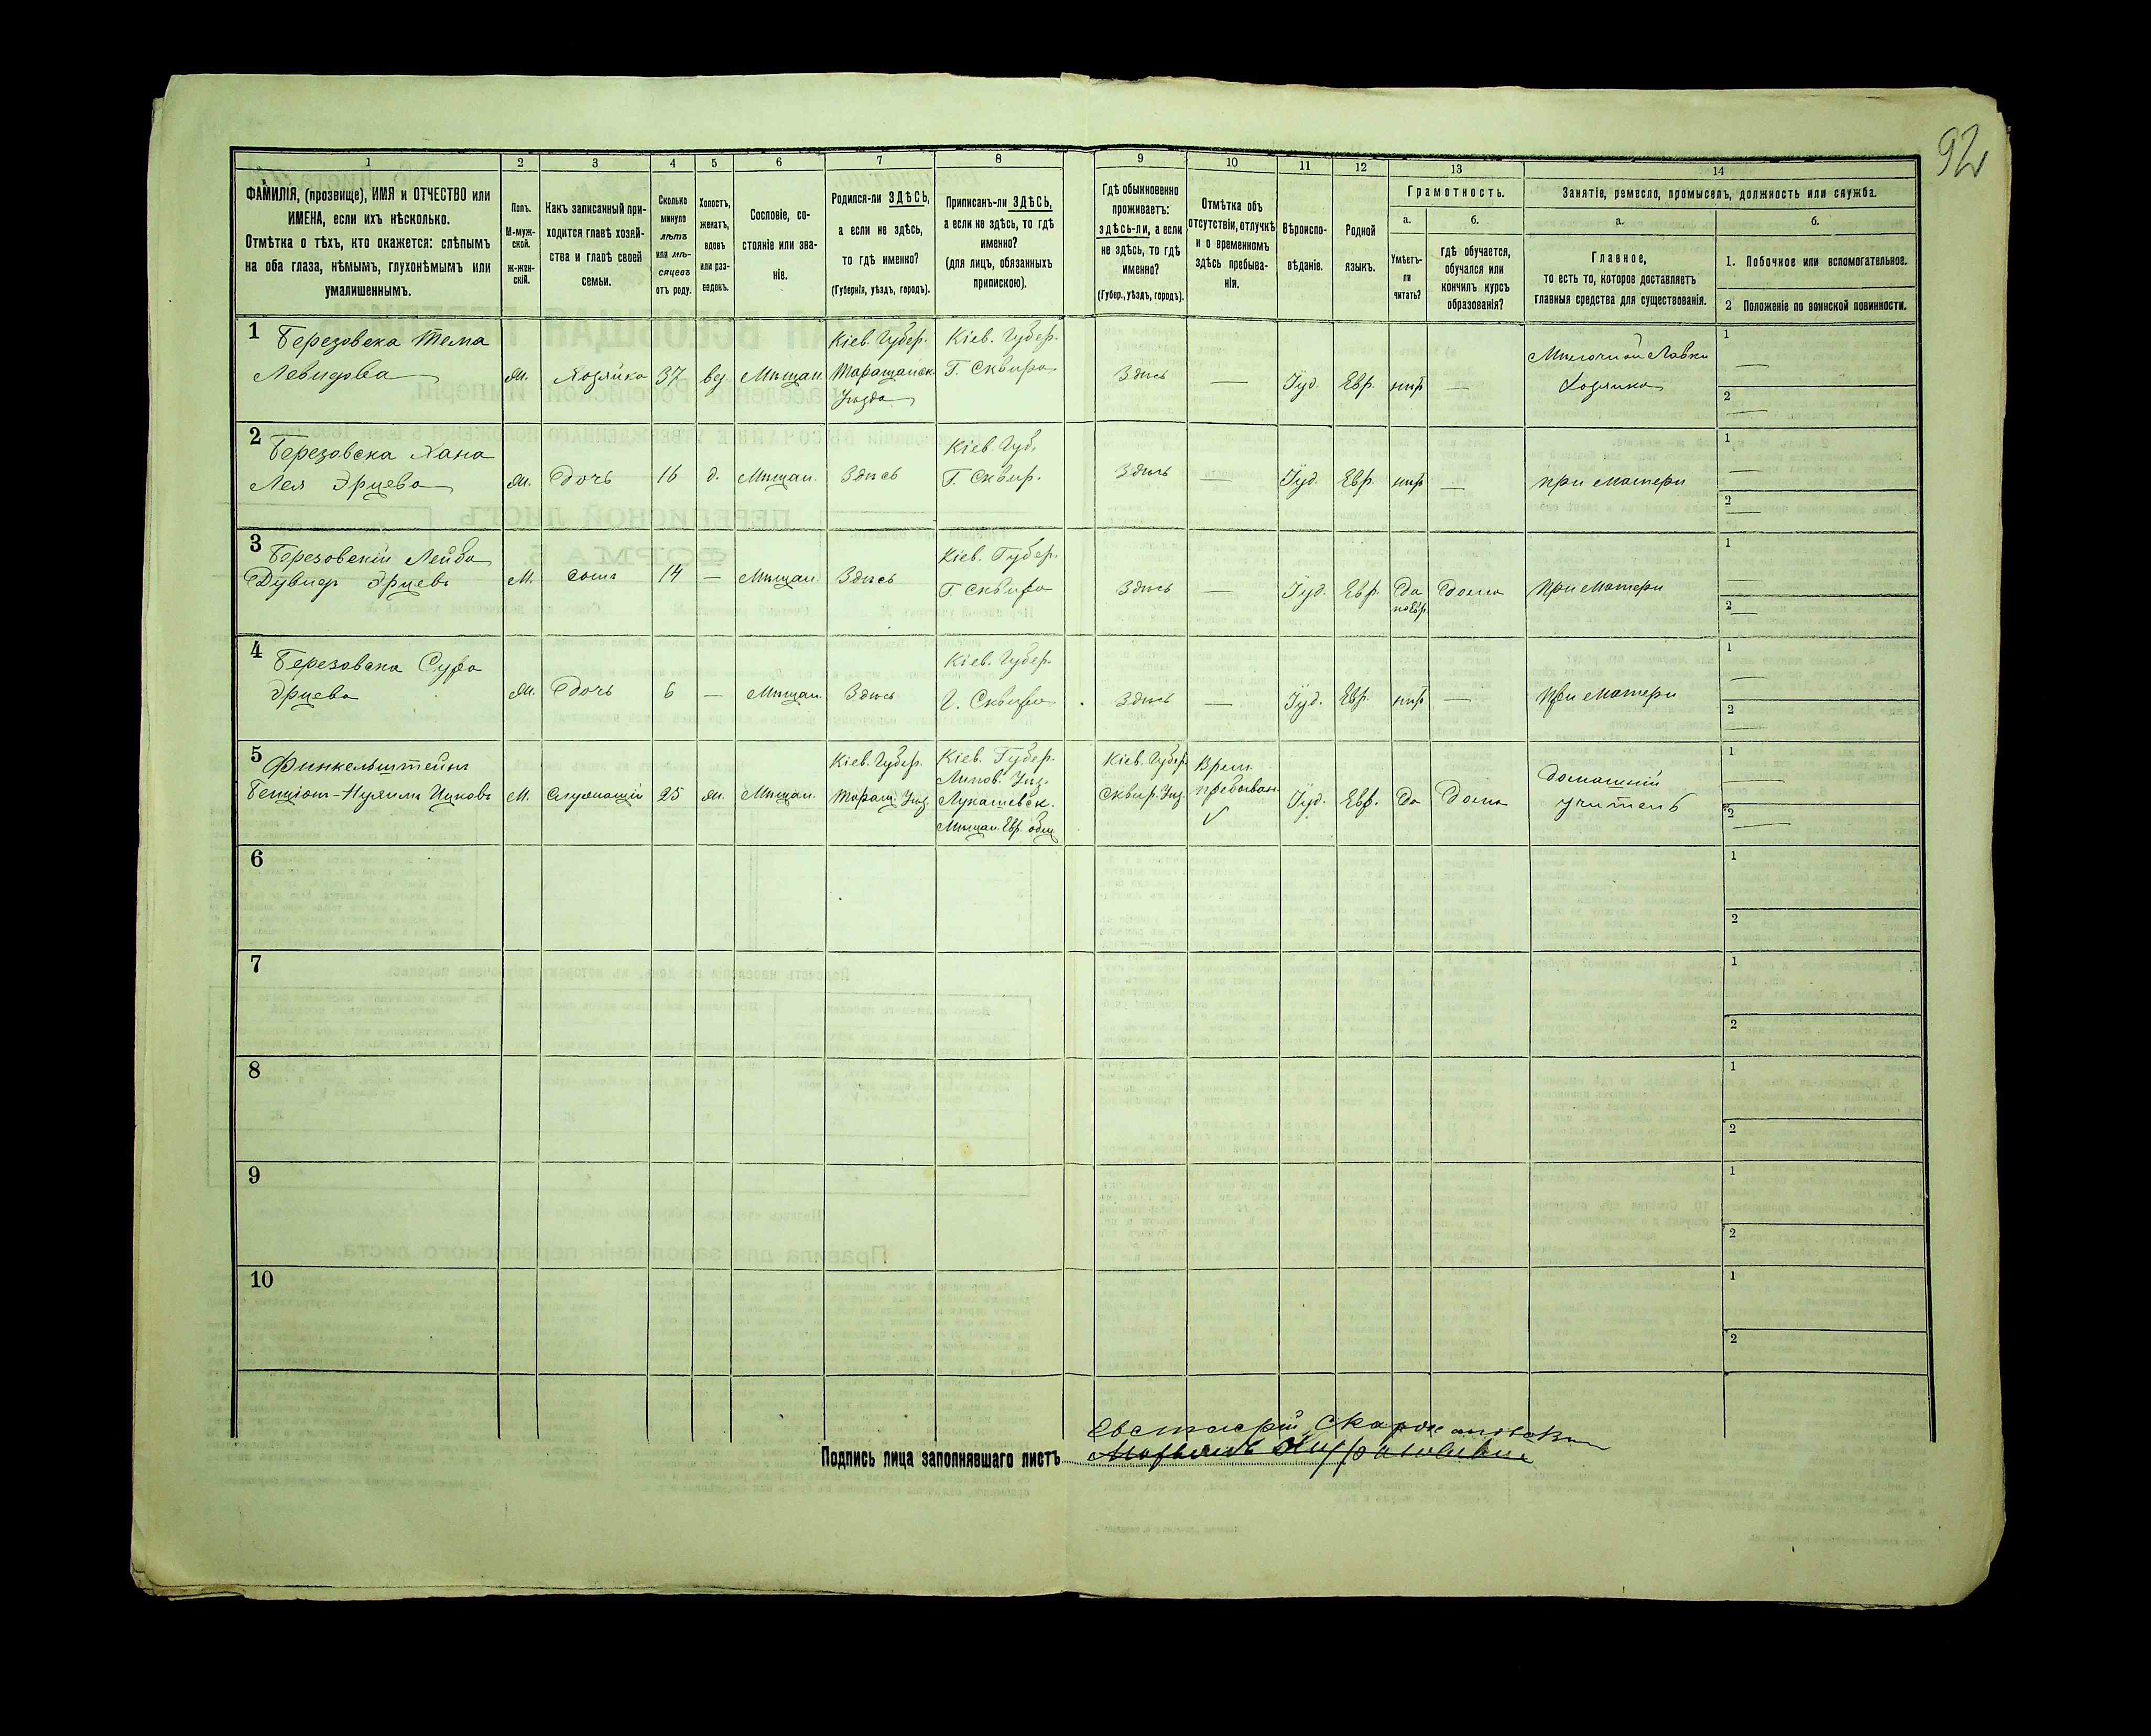 92
1 2 3 4 5 6 7 8 9 10 11 12 13 14
ФАМИЛІЯ, (прозвище), ИМЯ и ОТЧЕСТВО или
ИМЕНА, если ихъ нѣсколько.
Отмѣтка о тѣхъ, кто окажется: слѣпымъ
на оба глаза, нѣмымъ, глухонѣмымъ или
умалишеннымъ.
Полъ.
М-муж-
ской.
Ж-жен-
скій.
Какъ записанный при-
ходится главѣ хозяй-
ства и главѣ своей
семьи.
Сколько
минуло
лѣтъ
или мѣ-
сяцевъ
отъ роду.
Холостъ,
женатъ,
вдовъ
или раз-
веденъ.
Сословіе, со-
стояніе или зва-
ніе.
Родился-ли ЗДѢСЬ,
а если не здѣсь,
то гдѣ именно?
(Губернія, уѣздъ, городъ).
Приписанъ-ли ЗДѢСЬ,
а если не здѣсь, то гдѣ
именно?
(для лицъ, обязанныхъ
припискою).
Гдѣ обыкновенно
проживаетъ:
здѣсь-ли, а если
не здѣсь, то гдѣ
именно?
(Губер., уѣздъ, городъ).
Отмѣтка объ
отсутствіи, отлучкѣ
и о временномъ
здѣсь пребыва-
ніи.
Вѣроиспо-
вѣданіе.
Родной
языкъ.
Грамотность.
а.
Умѣетъ-
ли
читать?
б.
гдѣ обучается,
обучался или
кончилъ курсъ
образованія?
Занятіе, ремесло, промыселъ, должность или служба.
а.
Главное,
то есть то, которое доставляетъ
главныя средства для существованія.
б.
1. Побочное или вспомогательное.
2 Положеніе по воинской повинности.
1 Березовска Тема
Левидова
М. Хозяйка 37 вд Мѣщан.
Кіев. Губер.
Таращанск
Уѣзда
Кіев. Губер.
Г. Сквира
Здѣсь — Іуд. Евр. нѣт —
Мѣлочной Лавки
Хозяйка
1 —
2 —
2 Березовска Хана
Лея Эрцева
М. Дочь 16 д. Мѣщан. Здѣсь
Кіев. Губ.
Г. Сквир.
Здѣсь — Іуд. Евр. нѣт — при матери
1 —
2 —
3 Березовскій Лейба
Дувидъ Эрцевъ
М. Сынъ 14 — Мѣщан. Здѣсь
Кіев. Губер.
Г Сквира
Здѣсь — Іуд. Евр. Да
по Евр.
Дома При Матери
1 —
2 —
4 Березовска Сура
Эрцева
М. Дочь 6 — Мѣщан. Здѣсь
Кіев. Губер.
Г. Сквира
Здѣсь — Іуд. Евр. нѣт — При Матери
1 —
2 —
5 Финкельштейнъ
Ицковъ
М. Служащій 25 Мѣщан.
Кіев. Губер.
Таращ. Уѣз.
Кіев. Губер.
Липов. Уѣз.
Лукашевск.
Мѣщан. Евр. общ
Кіев. Губер.
Сквир. Уѣз.
Врем.
пребыван.
Іуд. Евр. Да Дома
Домашній
учитель
1 —
2 —
6 1
2
7 1
2
8 1
2
9 1
2
10 1
2
Подпись лица заполнявшаго листъ